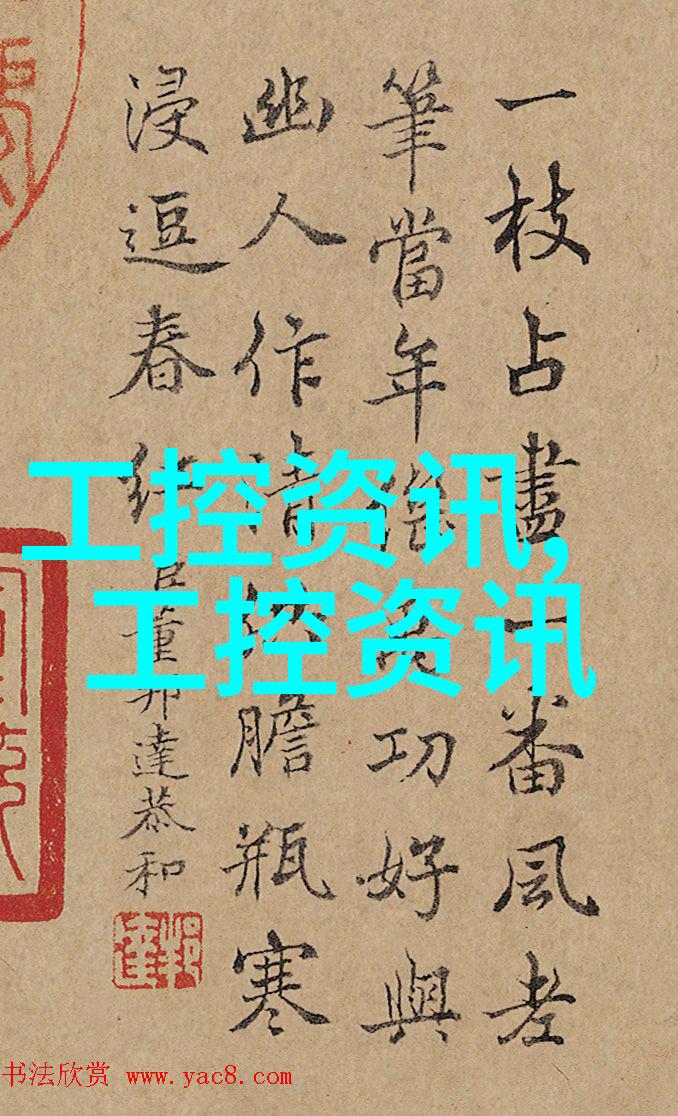 一枝占盡一番風老
筆當年功好與
幽人作清膽瓶寒
浸逗春紅
臣董邦達恭和
邦達
工控资讯,
工控资讯
书法欣赏 www.yac8.com